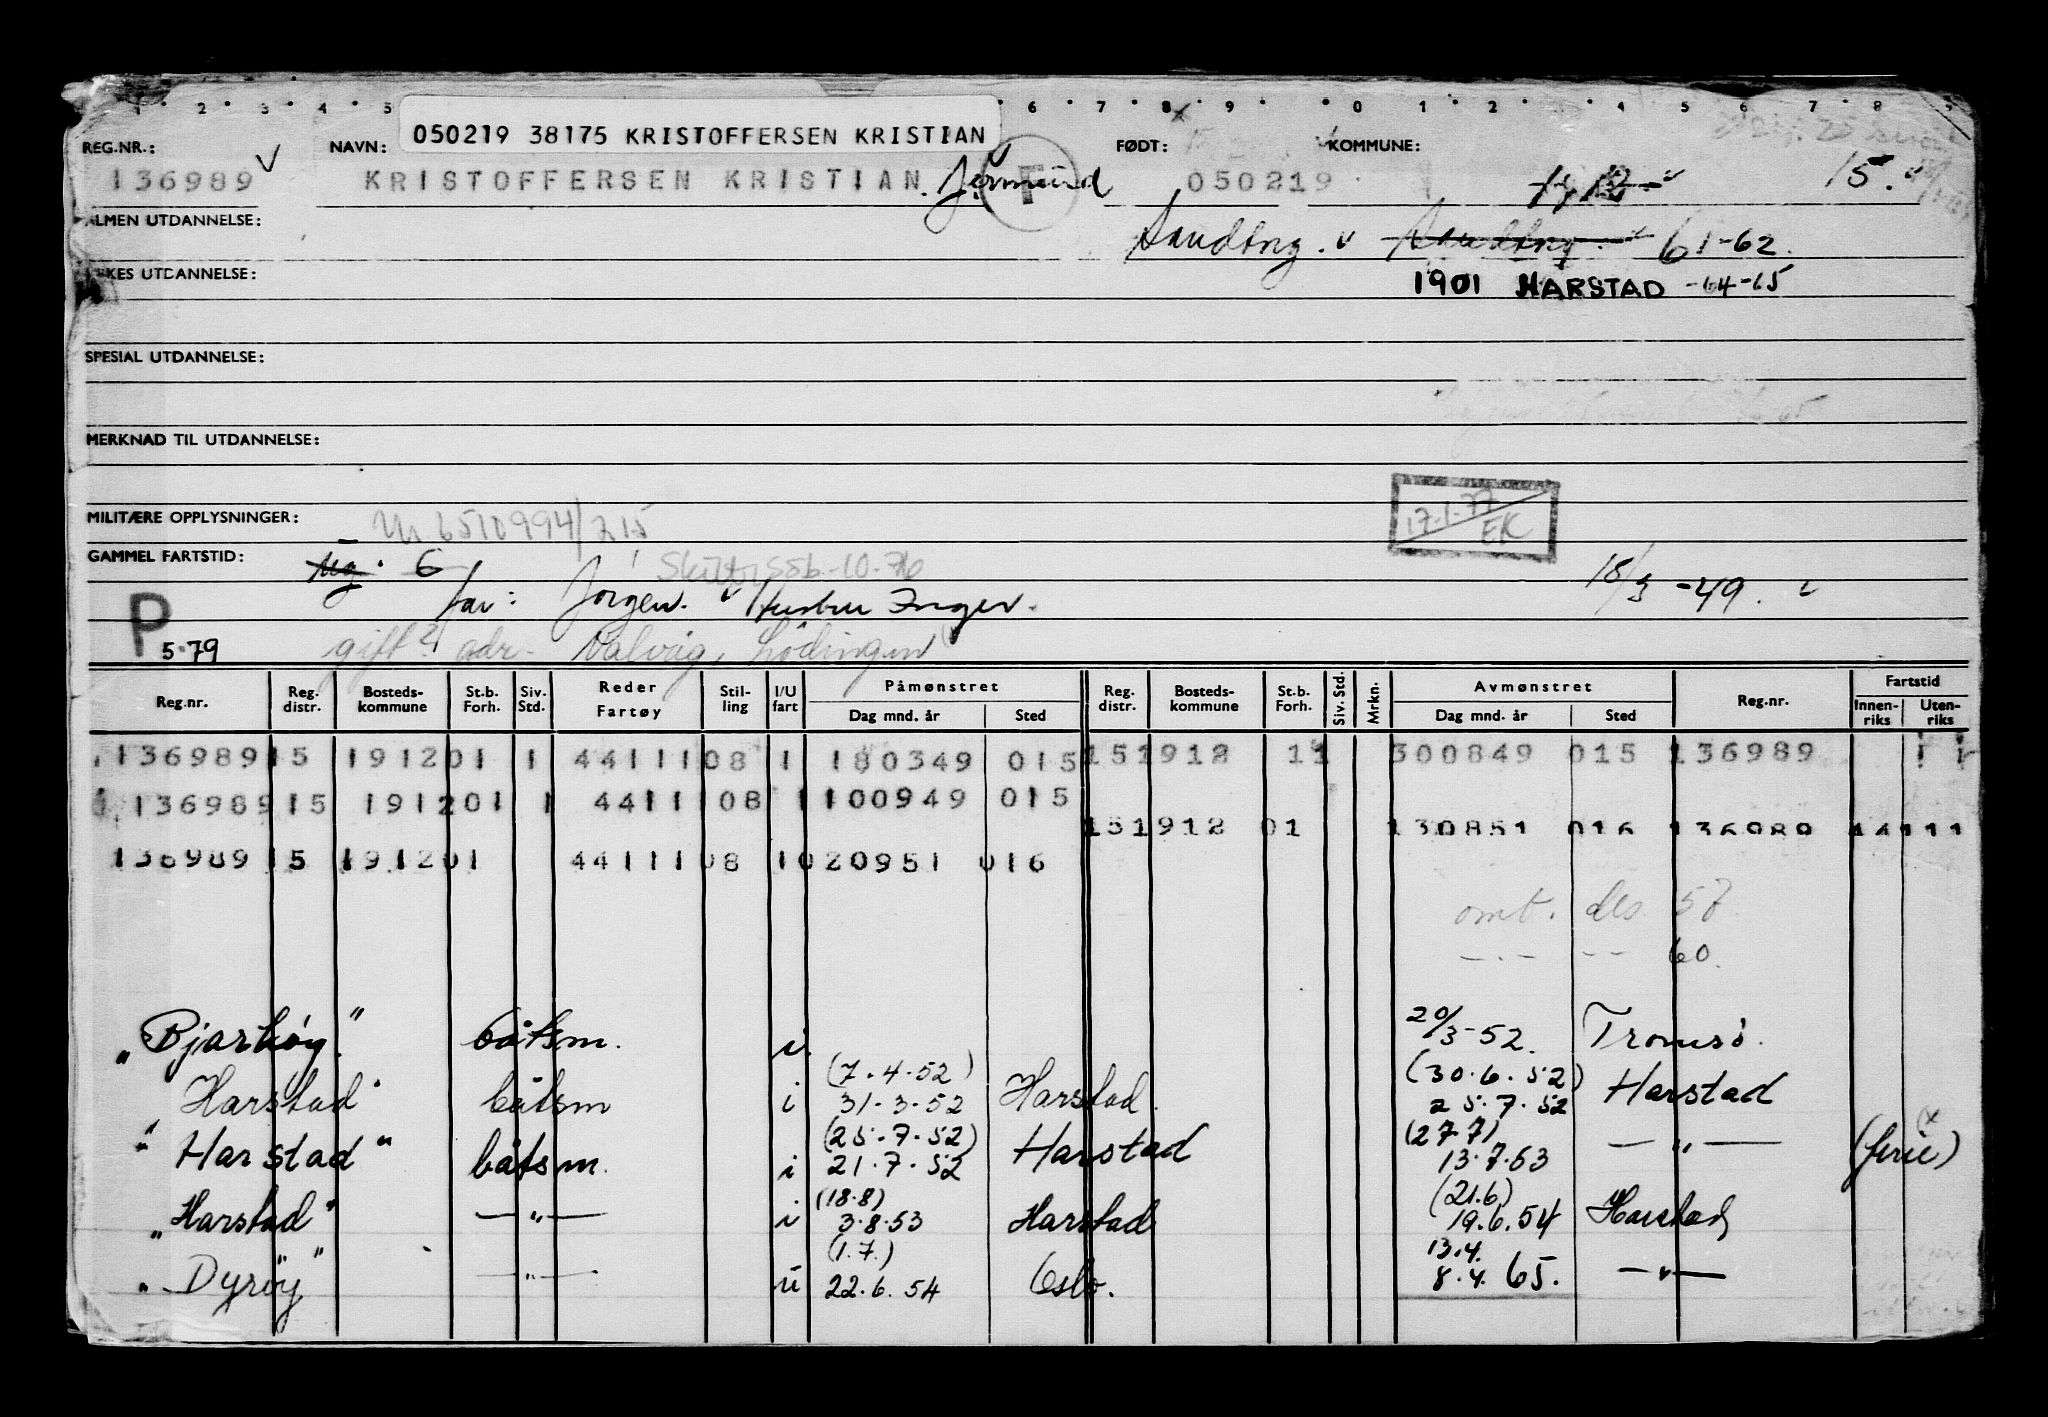 1 2 3 4 5 6 7 8 9 0 1 2 4 5 6 7 8
050219 38175 KRISTOFFERSEN KRISTIAN
REG.NR.: NAVN: FØDT: KOMMUNE:
136989 KRISTOFFERSEN KRISTIAN Jermund F 050219 15.
ALMEN UTDANNELSE: Sandtrg. Sandtrg. 61-62.
YRKES UTDANNELSE: 1901 HARSTAD -64-65
SPESIAL UTDANNELSE:
MERKNAD TIL UTDANNELSE:
17-1-77 EK
MILITÆRE OPPLYSNINGER: 6510994/215
GAMMEL FARTSTID: 6 10-76
far: Jørgen. Hustru Inger. 18/3-49.
P 5-79 gift? adr. Valvåg, Lödingen
Reg.nr. Reg. distr. Bosteds-kommune St.b. Forh. Siv. Std. Reder Fartøy Stil-ling I/U fart Påmønstret Dag mnd. år Sted Reg. distr. Bosteds-kommune St.b. Forh. Siv. Std. Mrkn. Avmønstret Dag mnd. år Sted Reg.nr. Fartstid Innen-riks Uten-riks
136989 15 1912 01 1 44111 08 1 180349 015 15 1912 11 300849 015 136989 11
136989 15 1912 01 1 4411 108 1 100949 015
15 1912 01 130851 016 136989 44111
136989 15 1912 01 44111 08 1 020951 016
omb. des. 57
— „ — -- 60.
„Bjarkøy" båtsm. i 20/3-52. Tromsø.
Harstad" båtsm i (7.4.52) 31.3.52 Harstad. (30.6.52) 25.7.52 Harstad
"Harstad" båtsm. i (25.7.52) 21.7.52 Harstad (27.7) 13.7.53 — „ — (ferie) x
„Harstad" — „ — i (18.8) 3.8.53 Harstad (21.6) 19.6.54 Harstad
„Dyrøy" — „ — u (1.7.) 22.6.54 Oslo. 13.4. 8.4.65. — „ —